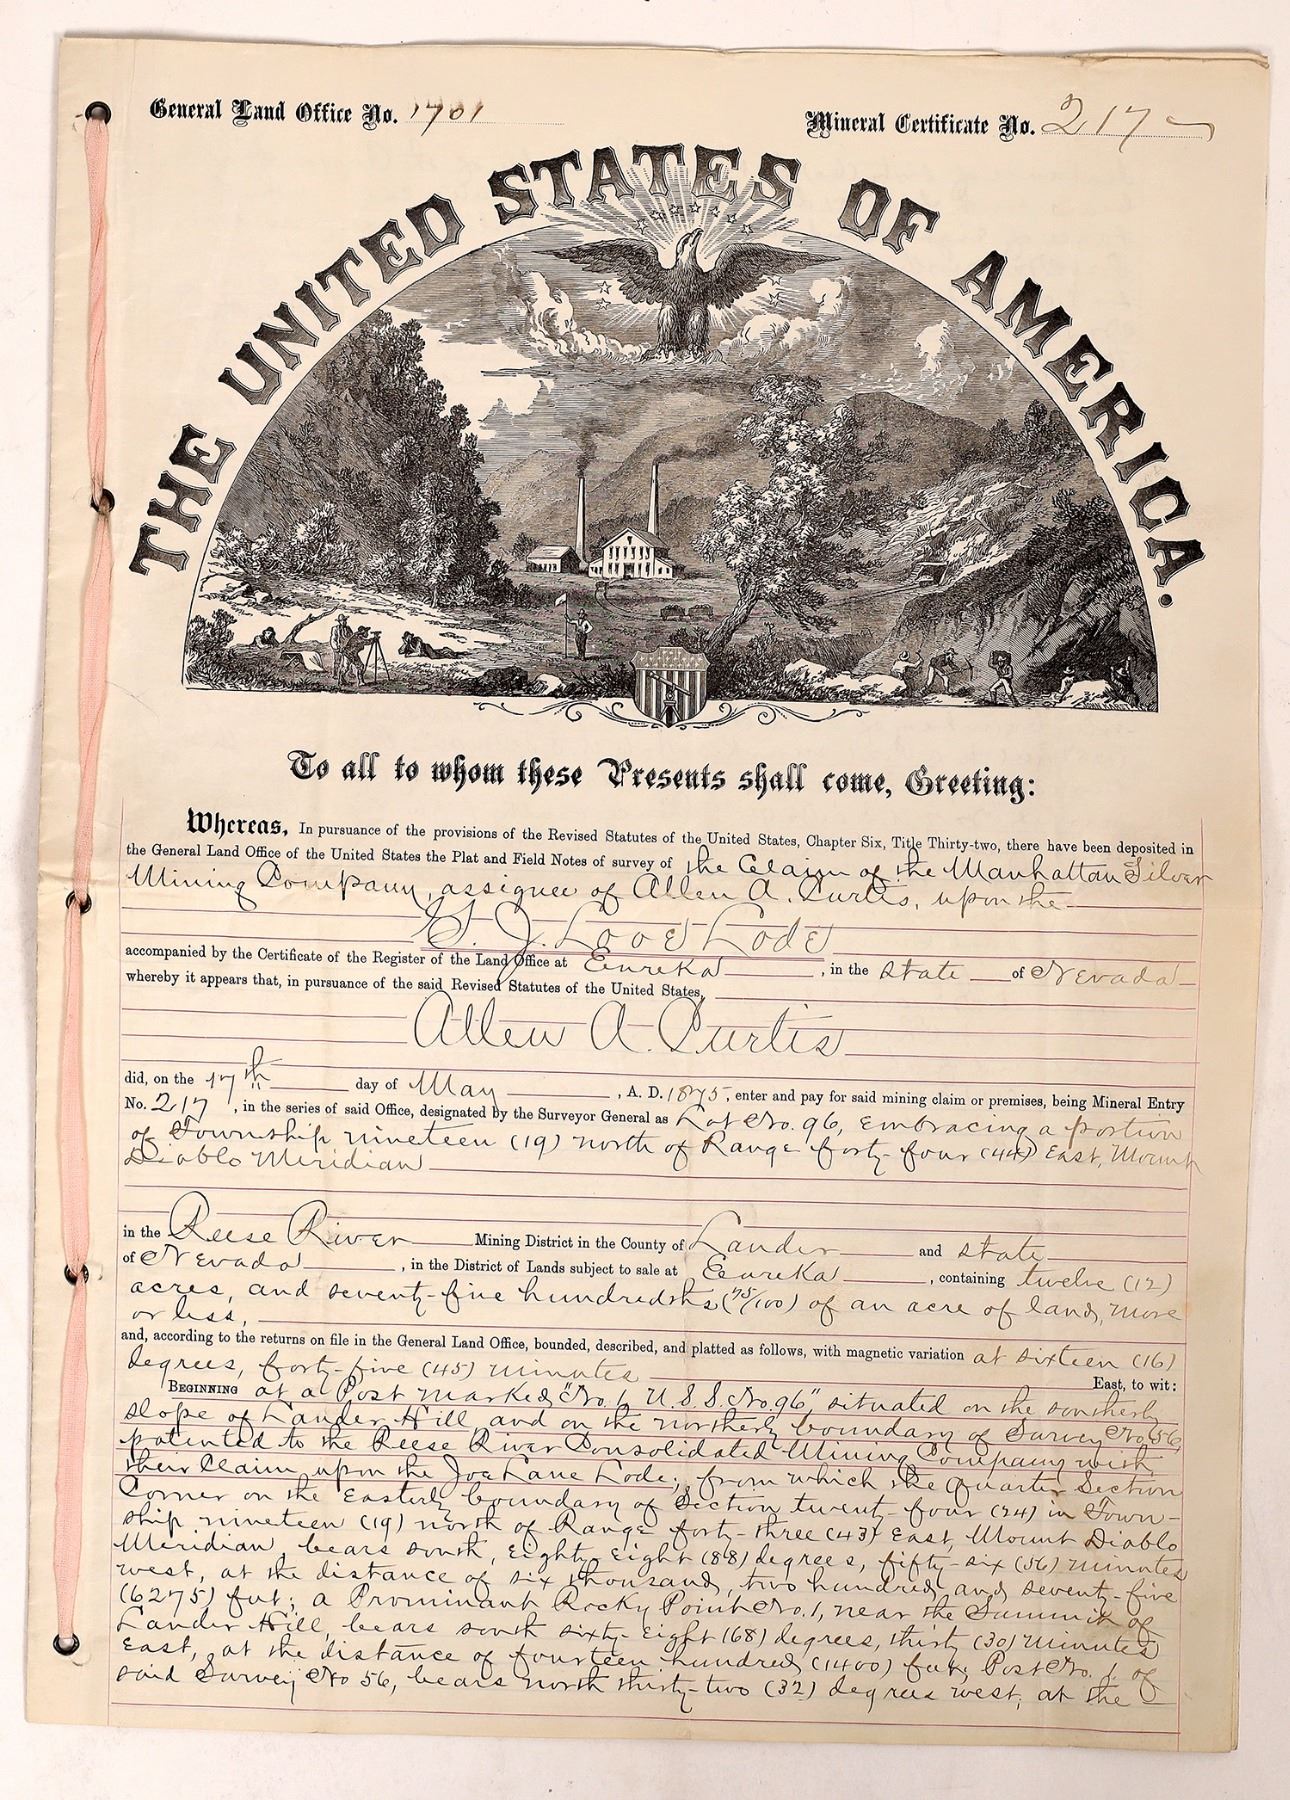 General Land Office No. 1701
Mineral Certificate No. 217
THE UNITED STATES OF AMERICA.
To all to whom these Presents shall come, Greeting:
Whereas, In pursuance of the provisions of the Revised Statutes of the United States, Chapter Six, Title Thirty-two, there have been deposited in
the General Land Office of the United States the Plat and Field Notes of survey of the Claim of the Manhattan Silver
Mining Company, assignee of Allen A. Curtis, upon the
J. Love Lode
accompanied by the Certificate of the Register of the Land Office at Eureka, in the State of Nevada
whereby it appears that, in pursuance of the said Revised Statutes of the United States,
Allen A. Curtis
did, on the 17th day of May, A. D. 1875, enter and pay for said mining claim or premises, being Mineral Entry
No. 217, in the series of said Office, designated by the Surveyor General as Lot No. 96, embracing a portion
of Township nineteen (19) north of Range forty-four (44) East, Mount
Diablo Meridian
in the Reese River Mining District in the County of Lander and State
of Nevada, in the District of Lands subject to sale at Eureka, containing twelve (12)
acres, and seventy-five hundredths (75/100) of an acre of land, more
or less,
and, according to the returns on file in the General Land Office, bounded, described, and platted as follows, with magnetic variation at sixteen (16)
degrees, forty-five (45) minutes East, to wit:
BEGINNING at a Post marked, "No. 1, U. S. S. No. 96", situated on the southerly
slope of Lander Hill, and on the northerly boundary of Survey No 56,
patented to the Reese River Consolidated Mining Company with
their Claim upon the Joe Lane Lode; from which the Quarter Section
Corner on the Easterly boundary of Section twenty-four (24) in Town-
ship nineteen (19) north of Range forty-three (43) East, Mount Diablo
Meridian, bears south, eighty-eight (88) degrees, fifty-six (56) minutes
west, at the distance of six thousand, two hundred, and seventy-five
(6275) feet; a Prominent Rocky Point No. 1, near the Summit of
Lander Hill, bears south sixty-eight (68) degrees, thirty (30) minutes
East, at the distance of fourteen hundred (1400) feet; Post No. 1 of
said Survey No 56, bears north thirty-two (32) degrees west, at the